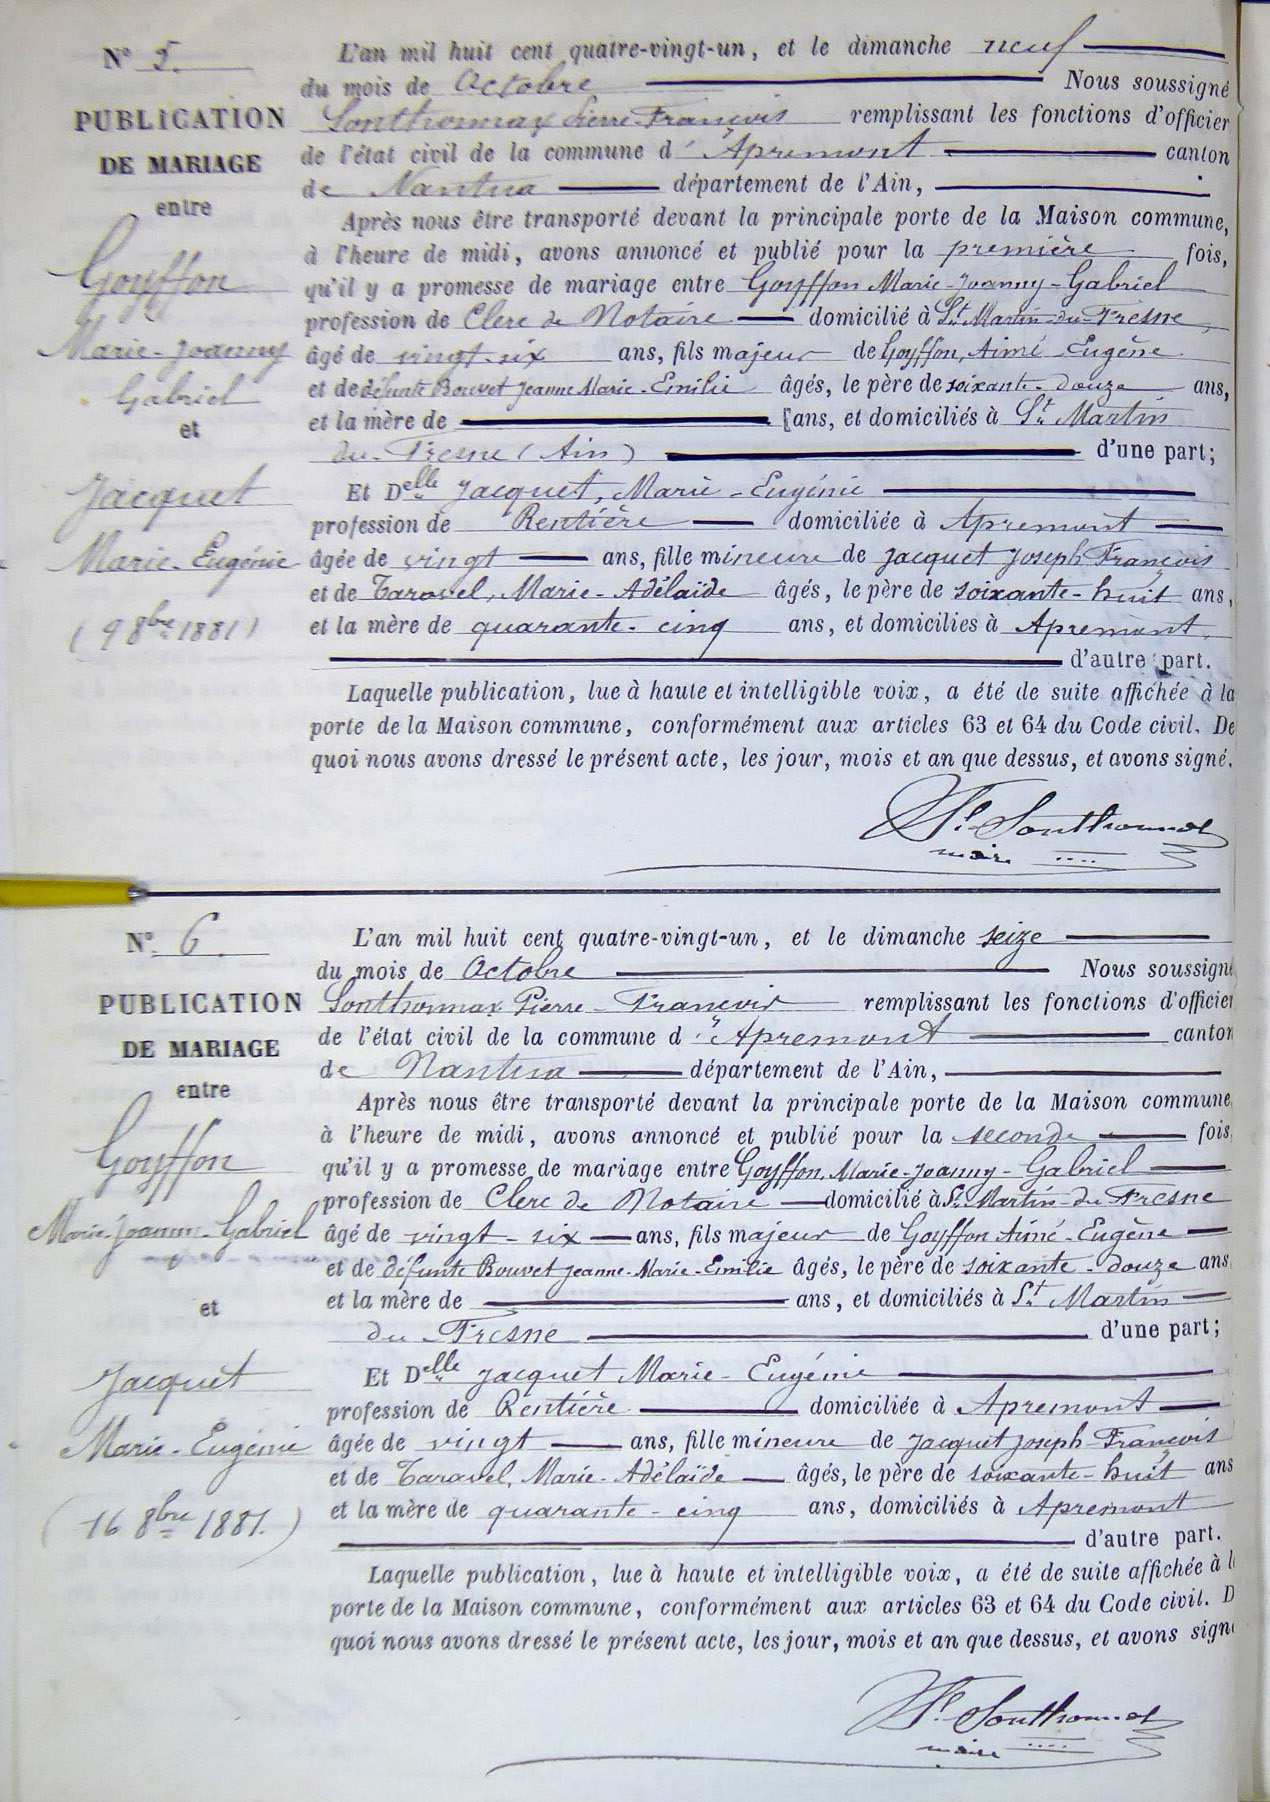 N° 5.
PUBLICATION
DE MARIAGE
entre
Goyffon
Marie-Joanny
Gabriel
et
Jacquet
Marie-Eugénie
(9 8bre 1881)
L'an mil huit cent quatre-vingt-un, et le dimanche neuf
du mois de Octobre Nous soussigné
Sonthonnax Pierre-François remplissant les fonctions d'officier
de l'état civil de la commune d'Apremont canton
de Nantua département de l'Ain,
Après nous être transporté devant la principale porte de la Maison commune,
à l'heure de midi, avons annoncé et publié pour la première fois,
qu'il y a promesse de mariage entre Goyffon Marie-Joanny-Gabriel
profession de Clerc de Notaire domicilié à St Martin-du-Fresne,
âgé de vingt-six ans, fils majeur de Goyffon, Aimé-Eugène
et de défunte Bouvet Jeanne Marie-Emilie âgés, le père de soixante-douze ans,
et la mère de ans, et domiciliés à St Martin
du-Fresne (Ain) d'une part;
Et Delle Jacquet, Marie-Eugénie
profession de Rentière domiciliée à Apremont
âgée de vingt ans, fille mineure de Jacquet Joseph François
et de Taravel, Marie-Adélaïde âgés, le père de soixante-huit ans,
et la mère de quarante-cinq ans, et domiciliés à Apremont.
d'autre part.
Laquelle publication, lue à haute et intelligible voix, a été de suite affichée à la
porte de la Maison commune, conformément aux articles 63 et 64 du Code civil. De
quoi nous avons dressé le présent acte, les jour, mois et an que dessus, et avons signé.
Sonthonnax
maire
N° 6.
PUBLICATION
DE MARIAGE
entre
Goyffon
Marie-Joanny-Gabriel
et
Jacquet
Marie-Eugénie
(16 8bre 1881.)
L'an mil huit cent quatre-vingt-un, et le dimanche seize
du mois de Octobre Nous soussigné
Sonthonnax Pierre-François remplissant les fonctions d'officier
de l'état civil de la commune d'Apremont canton
de Nantua département de l'Ain,
Après nous être transporté devant la principale porte de la Maison commune,
à l'heure de midi, avons annoncé et publié pour la seconde fois,
qu'il y a promesse de mariage entre Goyffon, Marie-Joanny-Gabriel
profession de Clerc de Notaire domicilié à St Martin-du-Fresne
âgé de vingt-six ans, fils majeur de Goyffon Aimé-Eugène
et de défunte Bouvet Jeanne-Marie-Emilie âgés, le père de soixante-douze ans
et la mère de ans, et domiciliés à St Martin
du-Fresne d'une part;
Et Delle Jacquet Marie-Eugénie
profession de Rentière domiciliée à Apremont
âgée de vingt ans, fille mineure de Jacquet Joseph-François
et de Taravel, Marie-Adélaïde âgés, le père de soixante-huit ans
et la mère de quarante-cinq ans, domiciliés à Apremont
d'autre part.
Laquelle publication, lue à haute et intelligible voix, a été de suite affichée à l
porte de la Maison commune, conformément aux articles 63 et 64 du Code civil. D
quoi nous avons dressé le présent acte, les jour, mois et an que dessus, et avons signé
Sonthonnax
maire